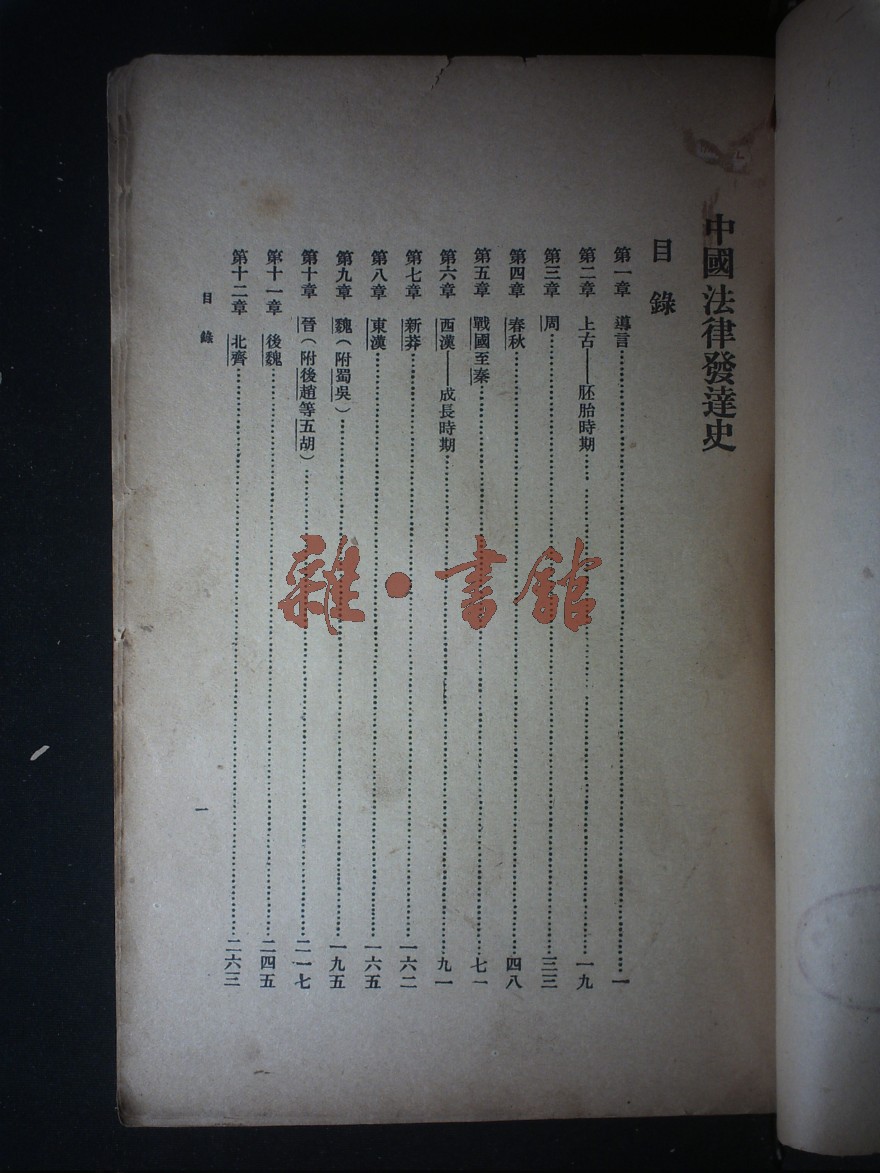 中國法律發達史
目錄
第一章 導言……一
第二章 上古——胚胎時期……一九
第三章 周……三三
第四章 春秋……四八
第五章 戰國至秦……七一
第六章 西漢——成長時期……九一
第七章 新莽……一六二
第八章 東漢……一六五
第九章 魏（附蜀吳）……一九五
第十章 晉（附後趙等五胡）……二一七
第十一章 後魏……二四五
第十二章 北齊……二六三
目錄
一
雜·書館